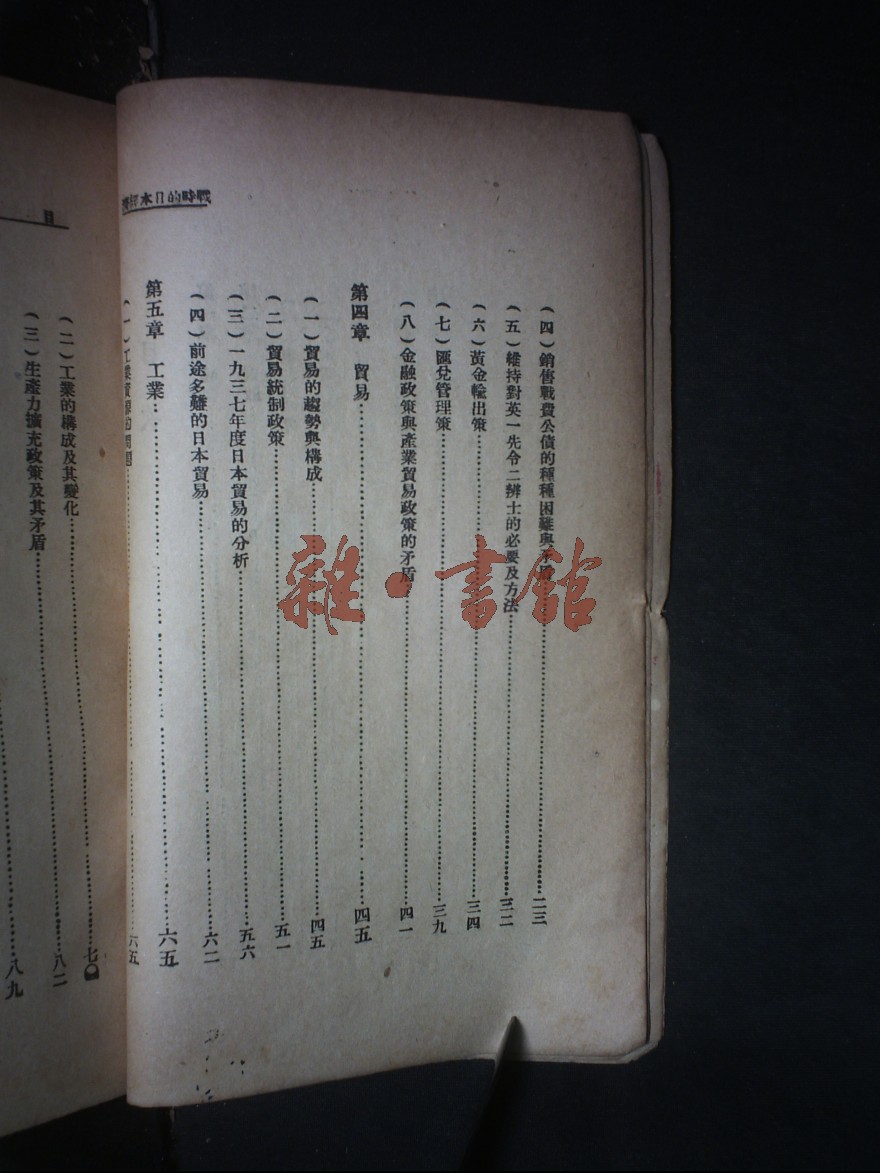 戰時的日本經濟
（四）銷售戰費公債的種種困難與矛盾……二三
（五）維持對英一先令二辨士的必要及方法……三二
（六）黃金輸出策……三四
（七）匯兌管理策……三九
（八）金融政策與產業貿易政策的矛盾……四一
第四章　貿易……四五
（一）貿易的趨勢與構成……四五
（二）貿易統制政策……五一
（三）一九三七年度日本貿易的分析……五六
（四）前途多難的日本貿易……六二
第五章　工業……六五
（一）工業資源的問題……六五
目
（二）工業的構成及其變化……七〇
（三）生產力擴充政策及其矛盾……八二
……八九
雜·書館